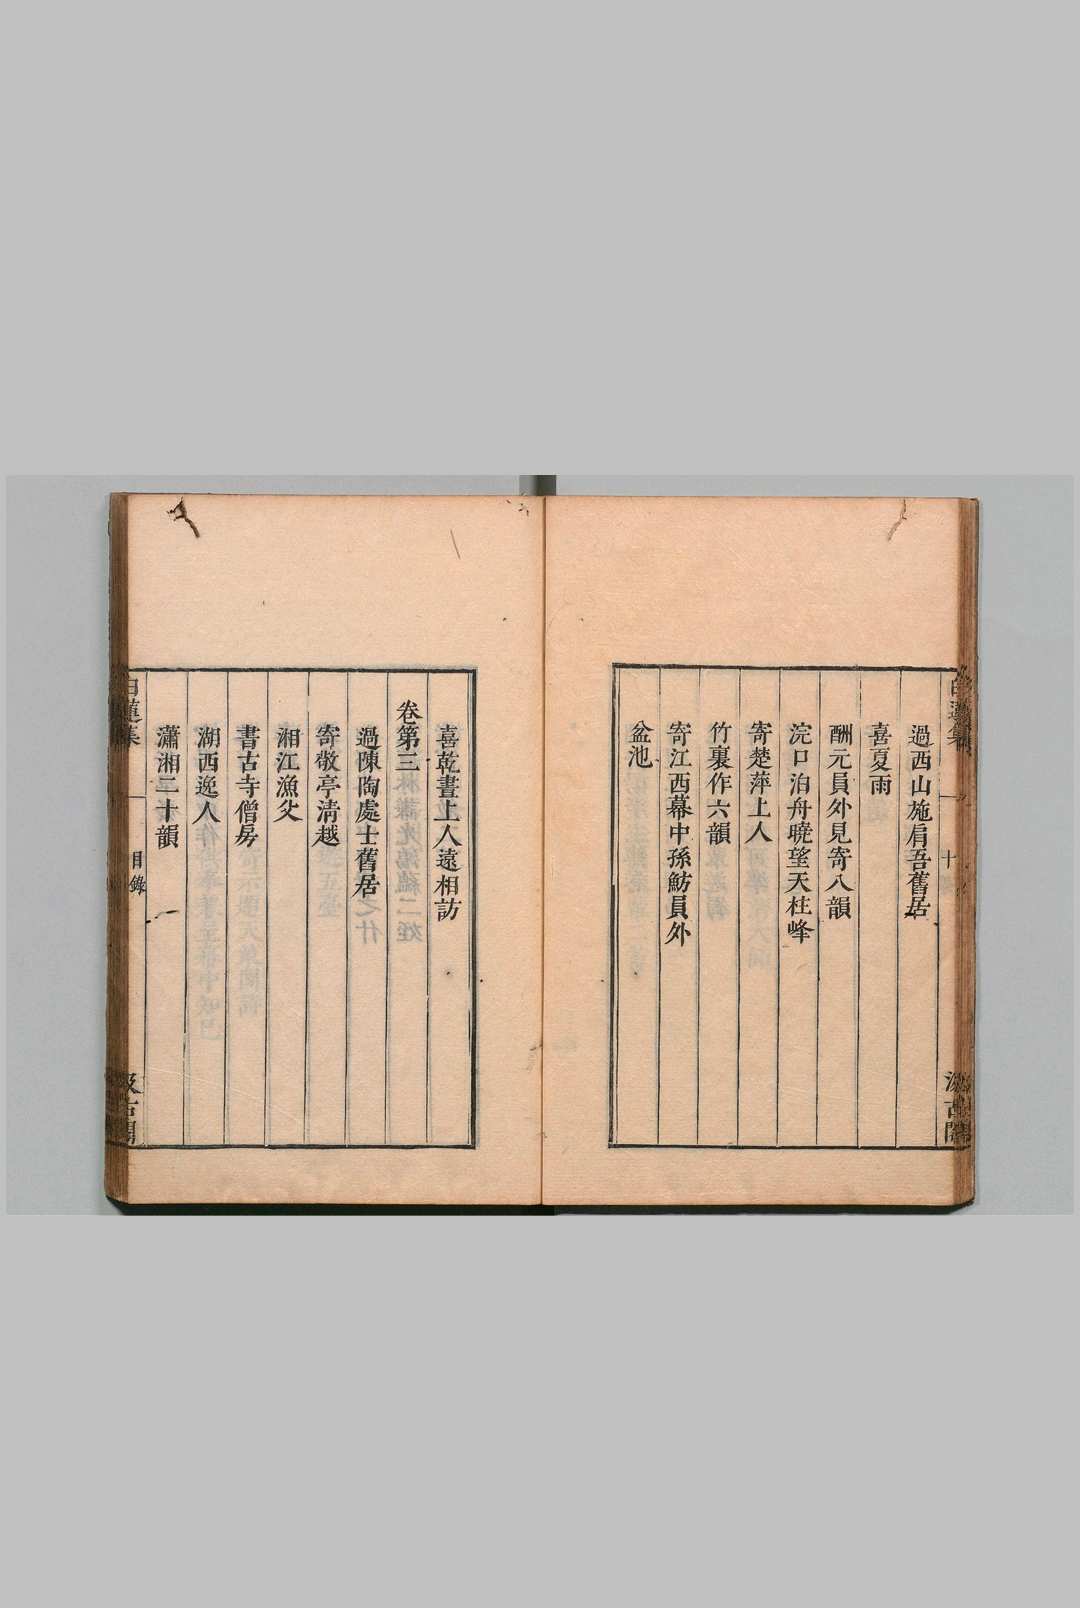 過西山施肩吾舊居
喜夏雨
酬元員外見寄八韻
浣口泊舟曉望天柱峰
寄楚萍上人
竹裏作六韻
寄江西幕中孫魴員外
盆池
喜乾晝上人遠相訪
卷第三
過陳陶處士舊居
寄敬亭清越
湘江漁父
書古寺僧房
湖西逸人
瀟湘二十韻
白蓮集
目錄
汲古閣